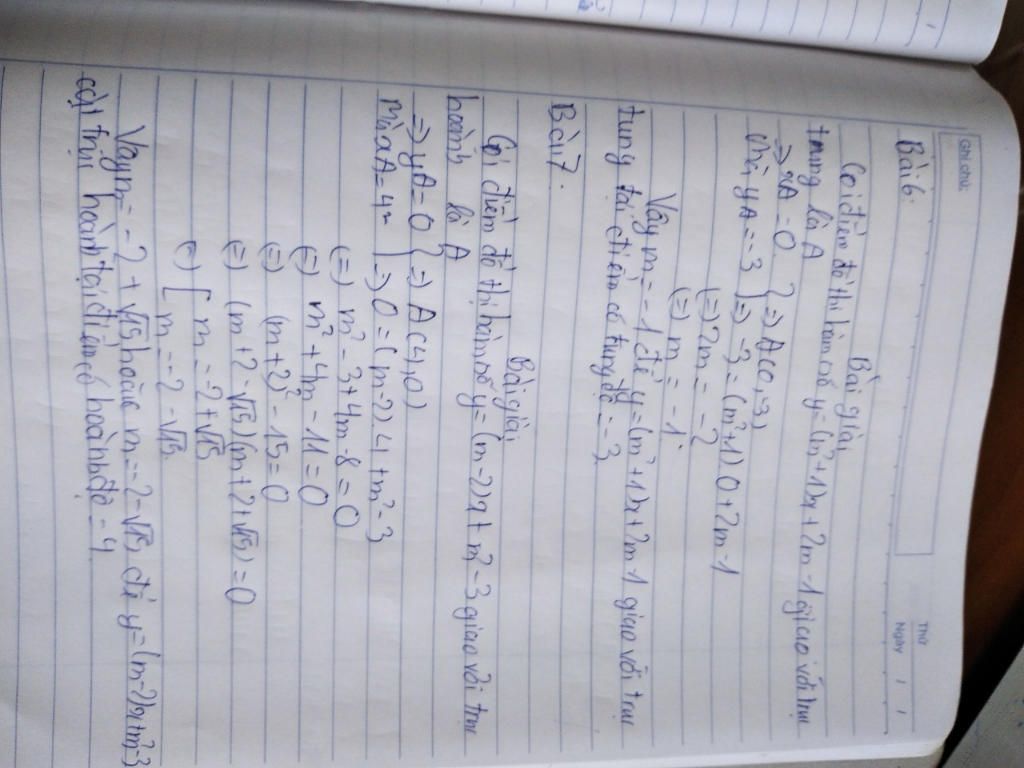 Ghi chú:
Thứ
Ngày / /
Bài 6:
Bài giải
Gọi điểm đồ thị hàm số y = (m² + 1)x + 2m - 1 giao với trục
tung là A
=> xA = 0 } => A(0,-3)
mà yA = -3 } => -3 = (m² + 1).0 + 2m - 1
(=) 2m = -2
(=) m = -1
Vậy m = -1 để y = (m² + 1)x + 2m - 1 giao với trục
tung tại điểm có tung độ = -3
Bài 7.
Bài giải
Gọi điểm đồ thị hàm số y = (m - 2)x + m² - 3 giao với trục
hoành là A
=> yA = 0 } => A(4,0)
Mà xA = 4 } => 0 = (m - 2).4 + m² - 3
(=) m² - 3 + 4m - 8 = 0
(=) m² + 4m - 11 = 0
(=) (m + 2)² - 15 = 0
(=) (m + 2 - √15)(m + 2 + √15) = 0
(=) [ m = -2 + √15
[ m = -2 - √15
Vậy m = -2 + √15 hoặc m = -2 - √15 để y = (m - 2)x + m² - 3
cắt trục hoành tại điểm có hoành độ = 4